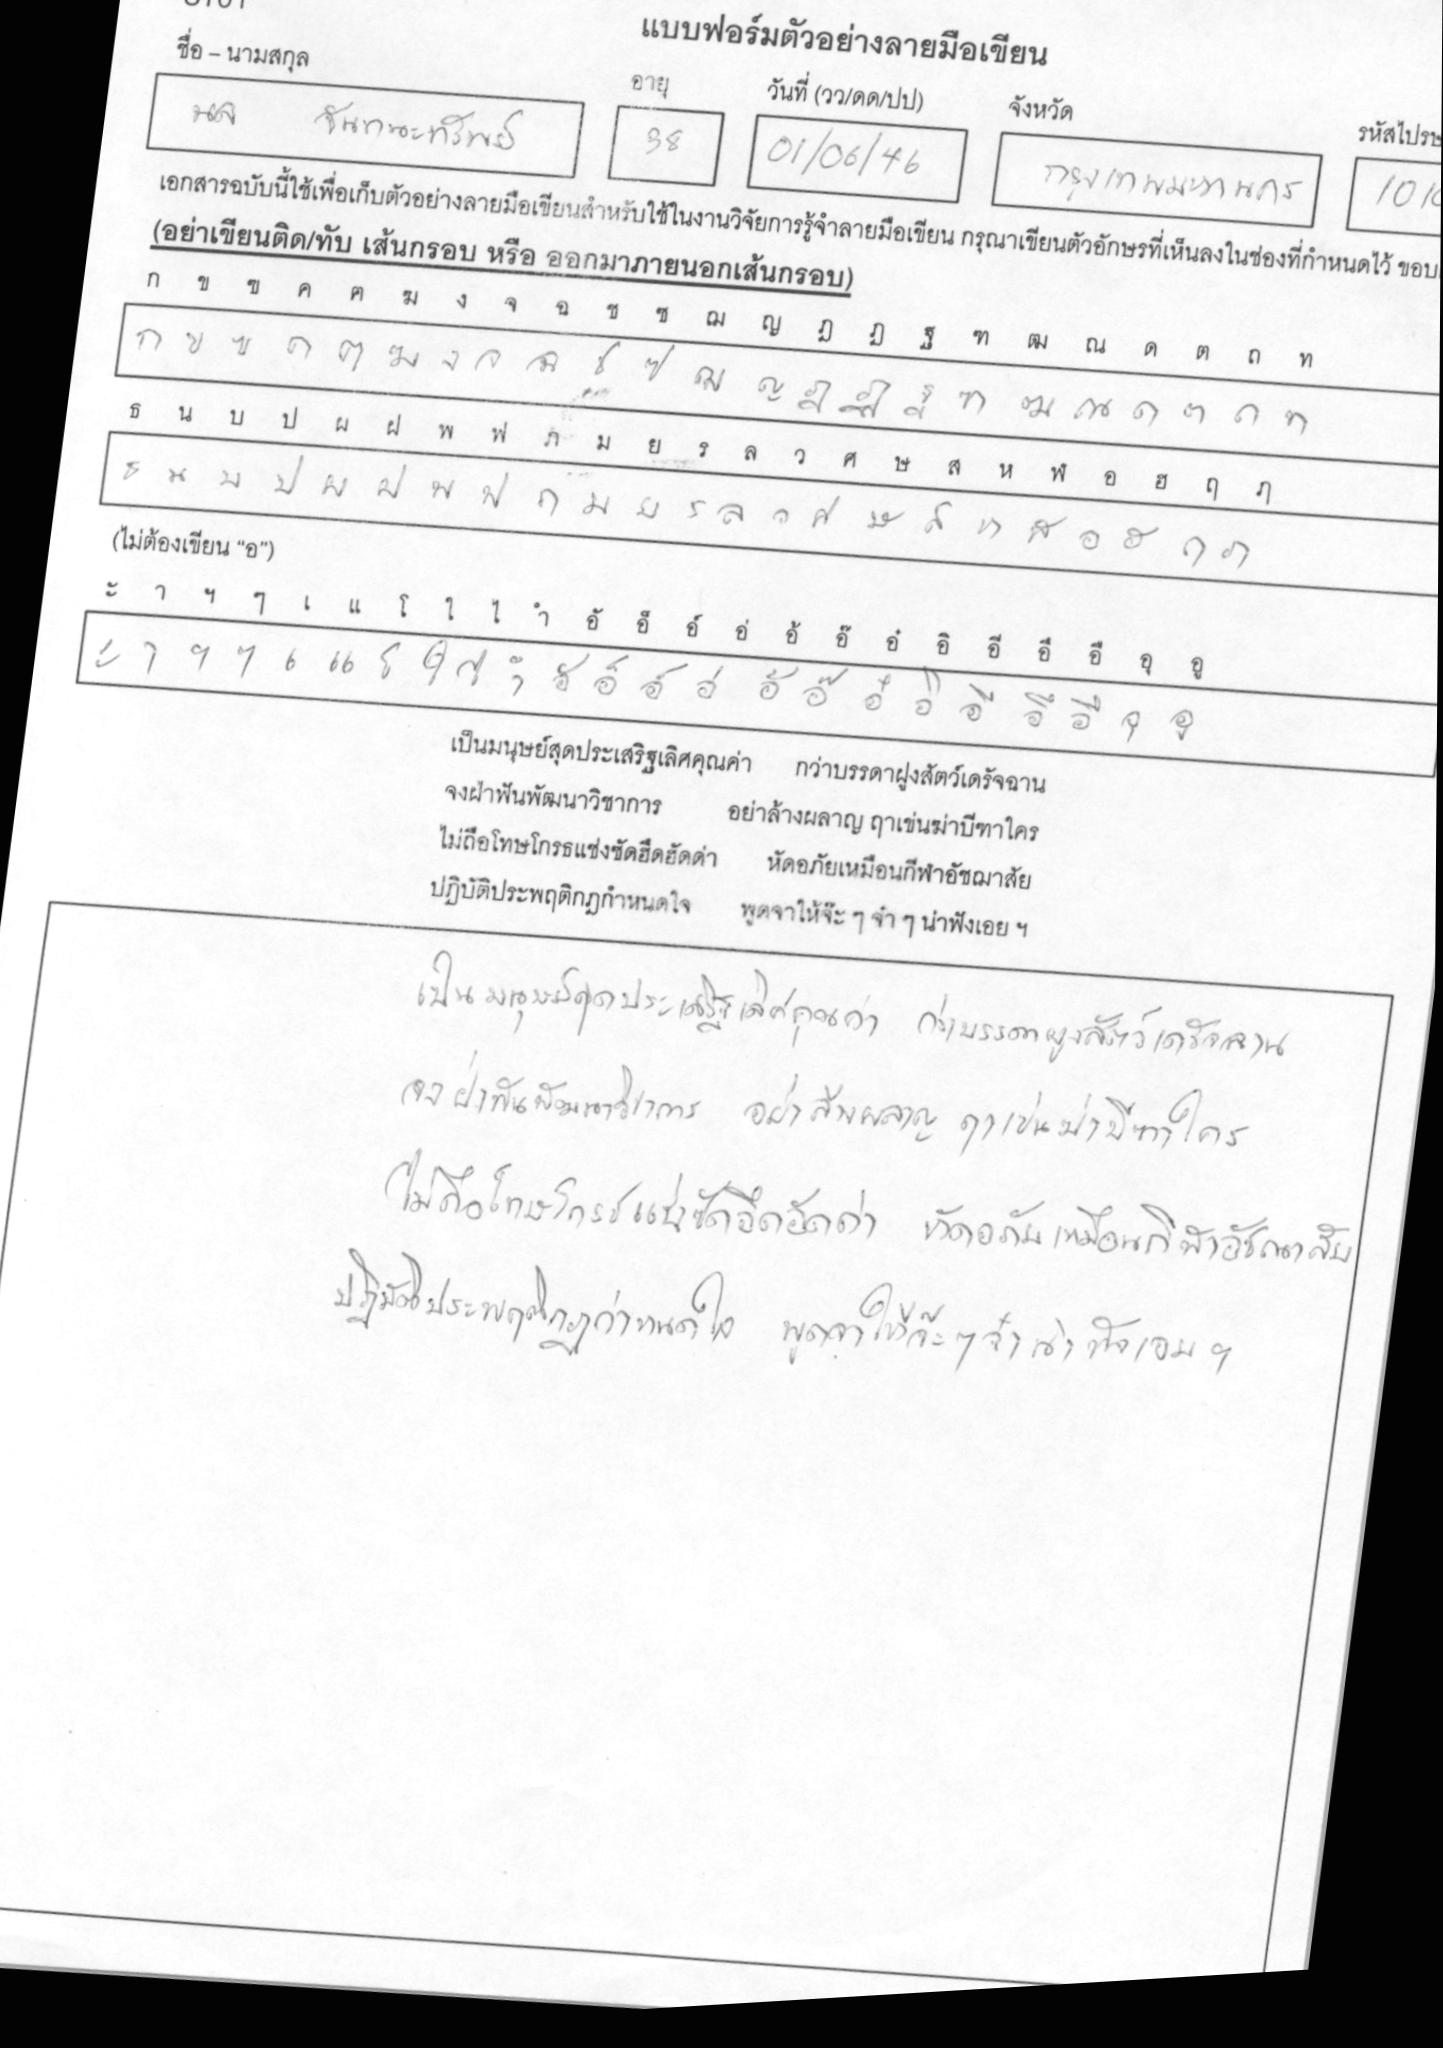 แบบฟอร์มตัวอย่างลายมือเขียน
ชื่อ – นามสกุล อายุ วันที่ (วว/ดด/ปป) จังหวัด
นล จันทนะทรัพย์ 38 01/06/46 กรุงเทพมหานคร
เอกสารฉบับนี้ใช้เพื่อเก็บตัวอย่างลายมือเขียนสำหรับใช้ในงานวิจัยการรู้จำลายมือเขียน กรุณาเขียนตัวอักษรที่เห็นลงในช่องที่กำหนดไว้
(อย่าเขียนติด/ทับ เส้นกรอบ หรือ ออกมาภายนอกเส้นกรอบ)
ก ข ฃ ค ฅ ฆ ง จ ฉ ช ซ ฌ ญ ฎ ฏ ฐ ฑ ฒ ณ ด ต ถ ท
ก ข ฃ ค ฅ ฆ ง จ ฉ ช ซ ฌ ญ ฎ ฏ ฐ ฑ ฒ ณ ด ต ถ ท
ธ น บ ป ผ ฝ พ ฟ ภ ม ย ร ล ว ศ ษ ส ห ฬ อ ฮ ฤ ฦ
ธ น บ ป ผ ฝ พ ฟ ภ ม ย ร ล ว ศ ษ ส ห ฬ อ ฮ ฤ ฦ
(ไม่ต้องเขียน “อ”)
ะ า ฯ ๆ เ แ โ ใ ไ ำ อั อ็ อ์ อ่ อ้ อ๊ อ๋ อิ อี อึ อื อุ อู
ะ า ฯ ๆ เ แ โ ใ ไ ำ อั อ็ อ์ อ่ อ้ อ๊ อ๋ อิ อี อึ อื อุ อู
เป็นมนุษย์สุดประเสริฐเลิศคุณค่า กว่าบรรดาฝูงสัตว์เดรัจฉาน
จงฝ่าฟันพัฒนาวิชาการ อย่าล้างผลาญ ฤาเข่นฆ่าบีฑาใคร
ไม่ถือโทษโกรธแช่งซัดฮึดฮัดด่า หัดอภัยเหมือนกีฬาอัชฌาสัย
ปฏิบัติประพฤติกฎกำหนดใจ พูดจาให้จ๊ะ ๆ จ๋า ๆ น่าฟังเอย ฯ
เป็นมนุษย์สุดประเสริฐเลิศคุณค่า กว่าบรรดาฝูงสัตว์เดรัจฉาน
จงฝ่าฟันพัฒนาวิชาการ อย่าล้างผลาญ ฤาเข่นฆ่าบีฑาใคร
ไม่ถือโทษโกรธแช่งซัดฮึดฮัดด่า หัดอภัยเหมือนกีฬาอัชฌาสัย
ปฏิบัติประพฤติกฎกำหนดใจ พูดจาให้จ๊ะ ๆ จ๋า น่าฟังเอย ฯ